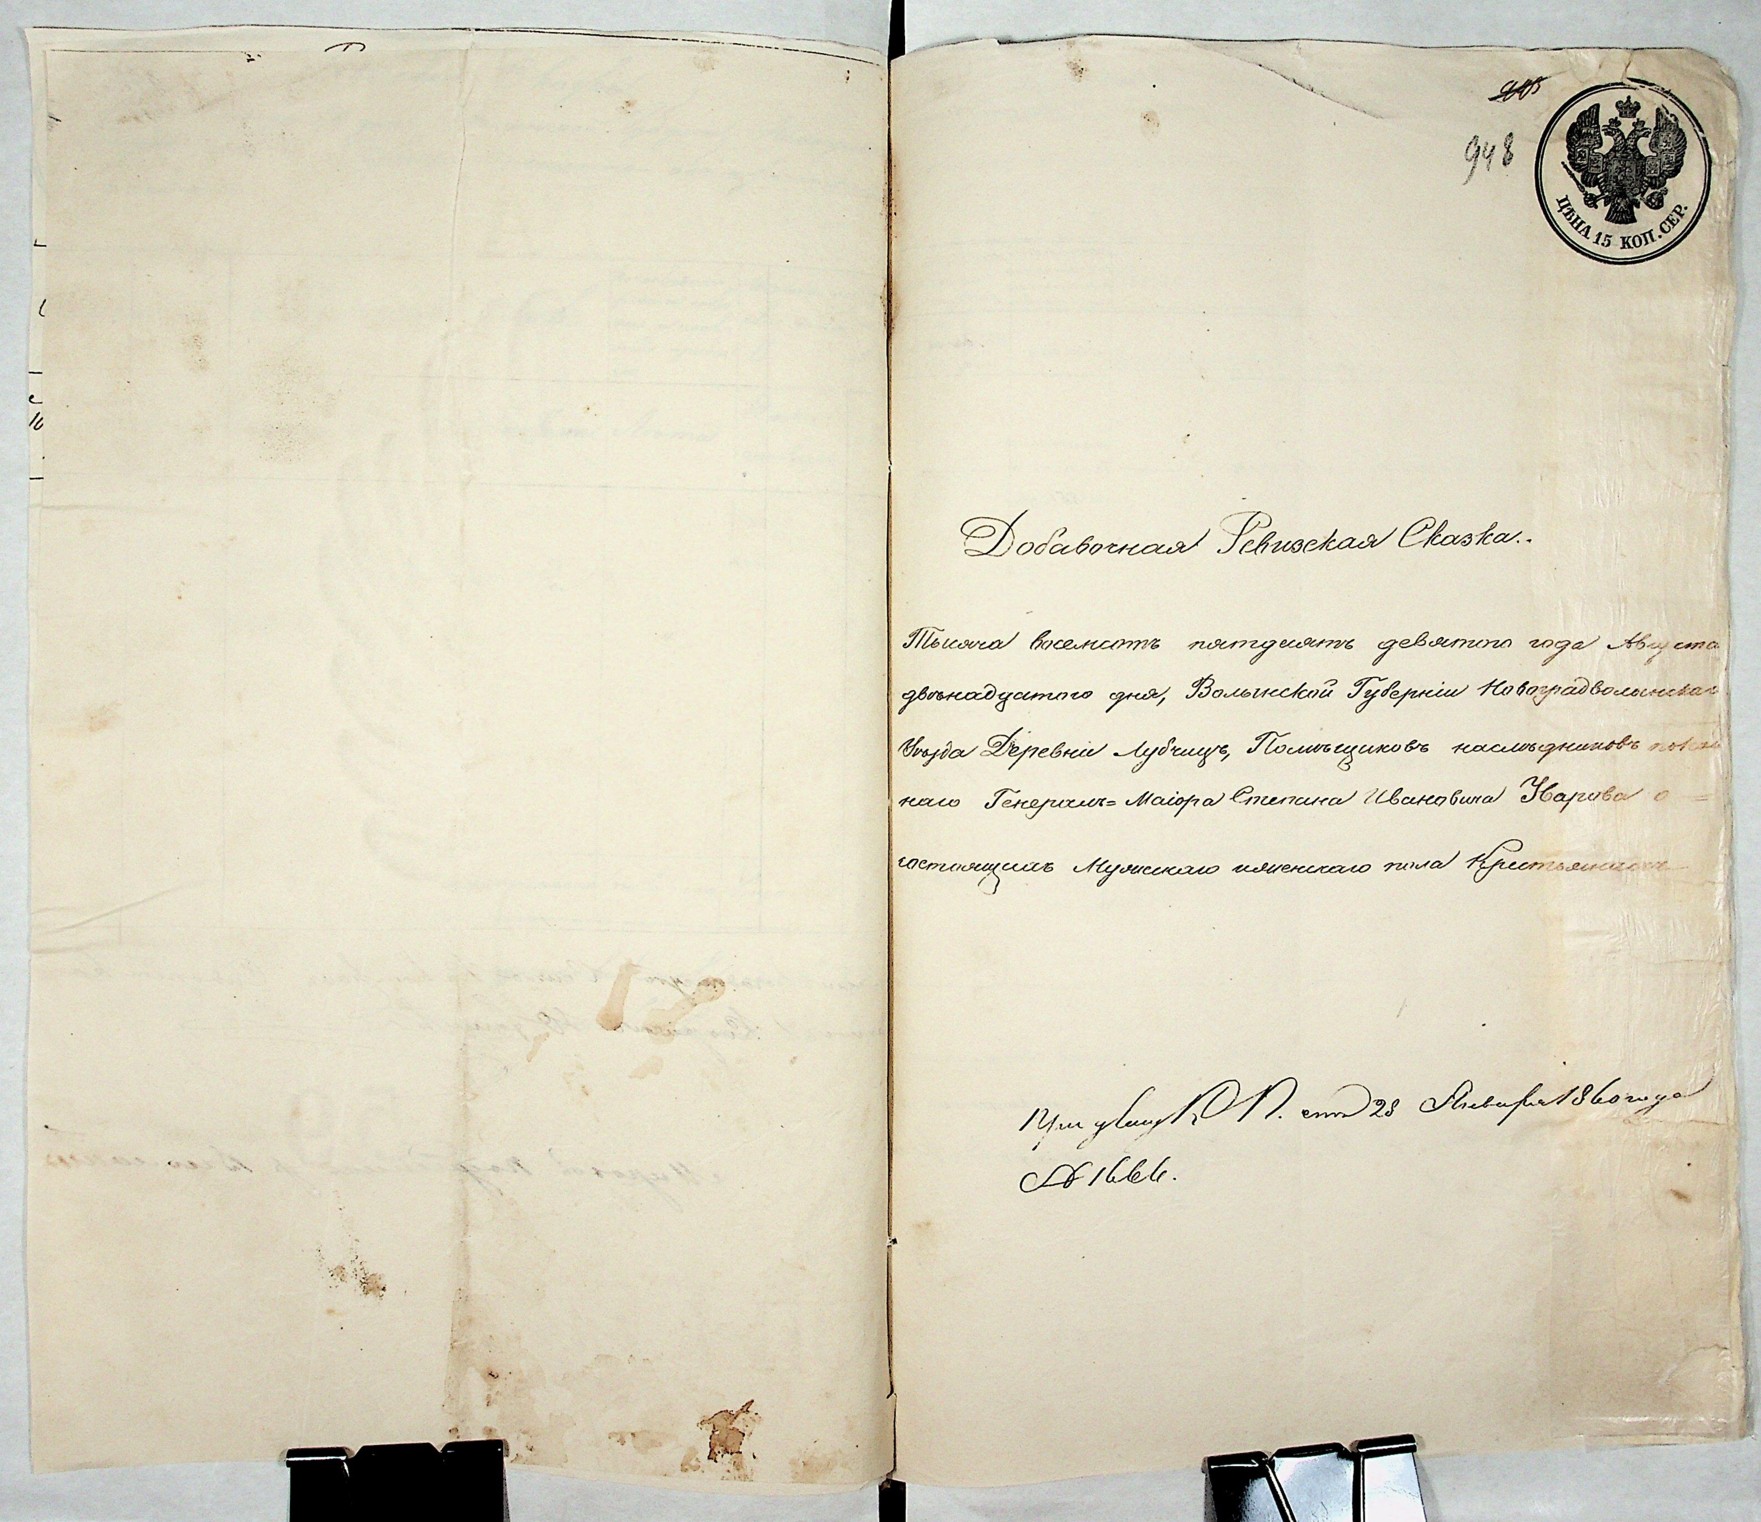 948
ЦѢНА 15 КОП. СЕР.
Добавочная Ревизская Сказка.
Тысяча восемсотъ пятдесятъ девятого года Августа
двѣнадцатого дня, Волынской Губерніи Новоградволынскаго
Уѣзда Деревни Лубчицъ, Помѣщиковъ наслѣдниковъ покой
наго Генералъ=Маіора Степана Ивановича Уварова о =
состоящихъ Мужскаго и женскаго пола Крестьянахъ
При указѣ К. П. отъ 28 Января 1860 года
№ 1666.